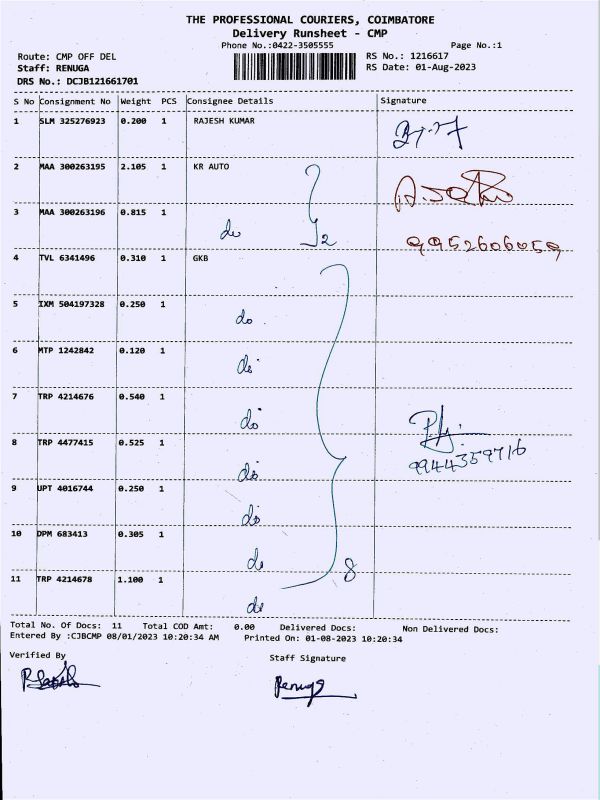 THE PROFESSIONAL COURIERS, COIMBATORE
Delivery Runsheet - CMP
Phone No.:0422-3505555 Page No.:1
Route: CMP OFF DEL RS No.: 1216617
Staff: RENUGA RS Date: 01-Aug-2023
DRS No.: DCJB121661701
S No Consignment No Weight PCS Consignee Details Signature
1 SLM 325276923 0.200 1 RAJESH KUMAR
2 MAA 300263195 2.105 1 KR AUTO
3 MAA 300263196 0.815 1
do 2 9952606059
4 TVL 6341496 0.310 1 GKB
5 IXM 504197328 0.250 1
do
6 MTP 1242842 0.120 1
do
7 TRP 4214676 0.540 1
do
8 TRP 4477415 0.525 1 9944359716
do
9 UPT 4016744 0.250 1
do
10 DPM 683413 0.305 1
do 8
11 TRP 4214678 1.100 1
do
Total No. Of Docs: 11 Total COD Amt: 0.00 Delivered Docs: Non Delivered Docs:
Entered By :CJBCMP 08/01/2023 10:20:34 AM Printed On: 01-08-2023 10:20:34
Verified By Staff Signature
Renuga